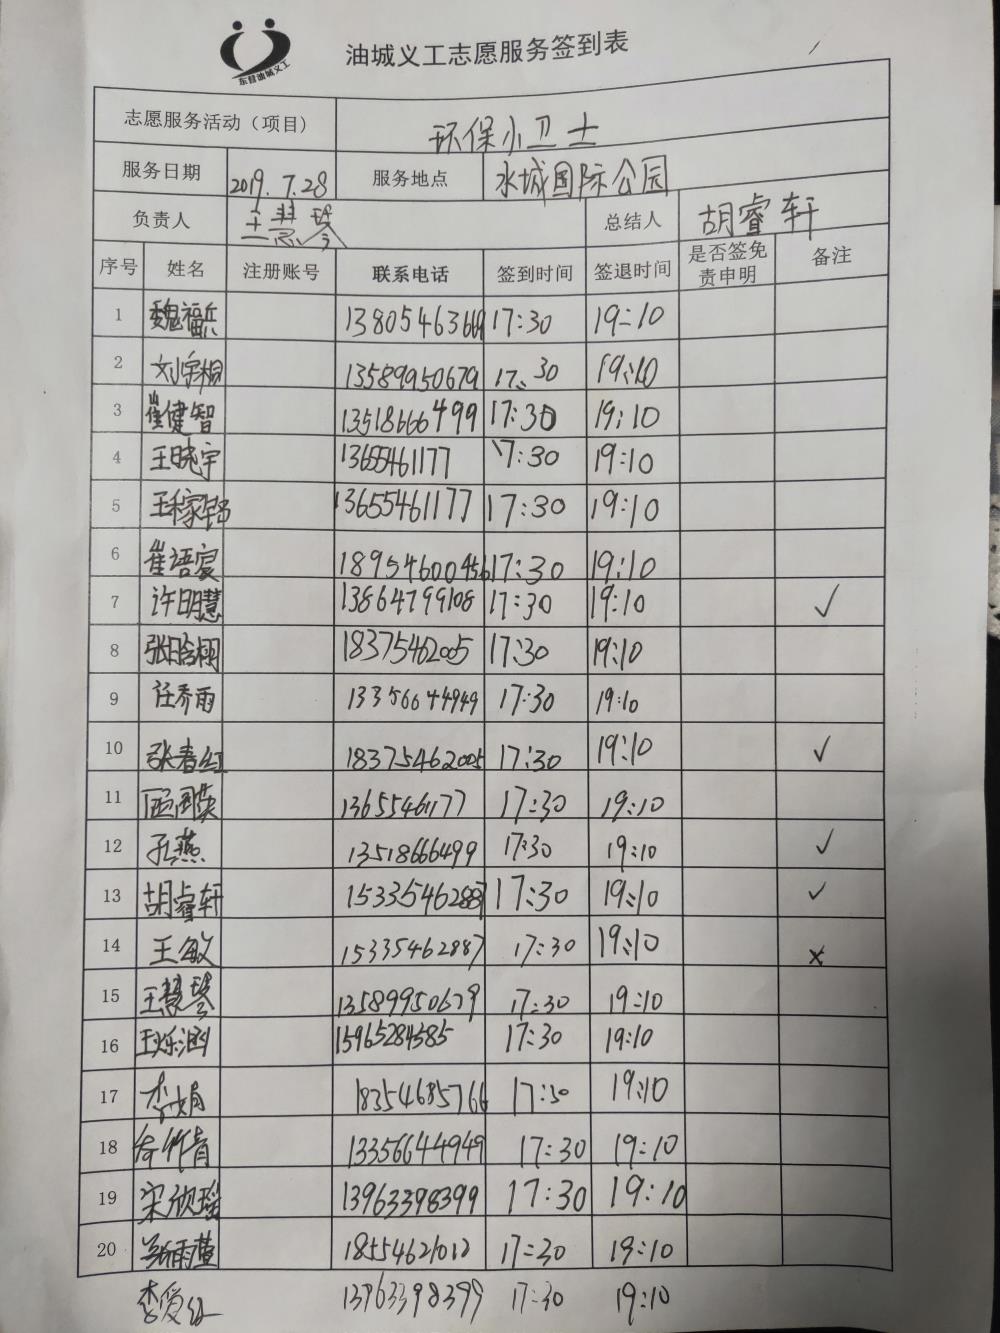 东营油城义工
油城义工志愿服务签到表
志愿服务活动（项目） 环保小卫士
服务日期 2019.7.28 服务地点 水城国际公园
负责人 王慧琴 总结人 胡睿轩
序号 姓名 注册账号 联系电话 签到时间 签退时间 是否签免责申明 备注
1 魏福兵 13805463669 17:30 19:10
2 刘宇桐 13589950679 17:30 19:10
3 崔健智 13518666499 17:30 19:10
4 王晓宇 13655461177 17:30 19:10
5 13655461177 17:30 19:10
6 崔语宸 18954600456 17:30 19:10
7 许明慧 13864799108 17:30 19:10 ✓
8 张晗栩 18375462005 17:30 19:10
9 任乔雨 13356644949 17:30 19:10
10 张春红 18375462005 17:30 19:10 ✓
11 13655461177 17:30 19:10
12 孔燕 13518666499 17:30 19:10 ✓
13 胡睿轩 15335462887 17:30 19:10 ✓
14 王敏 15335462887 17:30 19:10 ×
15 王慧琴 13589950679 17:30 19:10
16 王烁涵 15965284585 17:30 19:10
17 李娟 18354685766 17:30 19:10
18 13356644949 17:30 19:10
19 宋欣瑶 13963398399 17:30 19:10
20 郑雨萱 18554621012 17:30 19:10
李爱红 13963398399 17:30 19:10